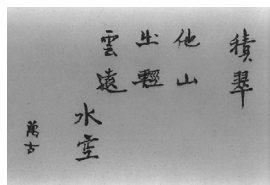 積翠
他山
出輕
雲遠
水空
萬古